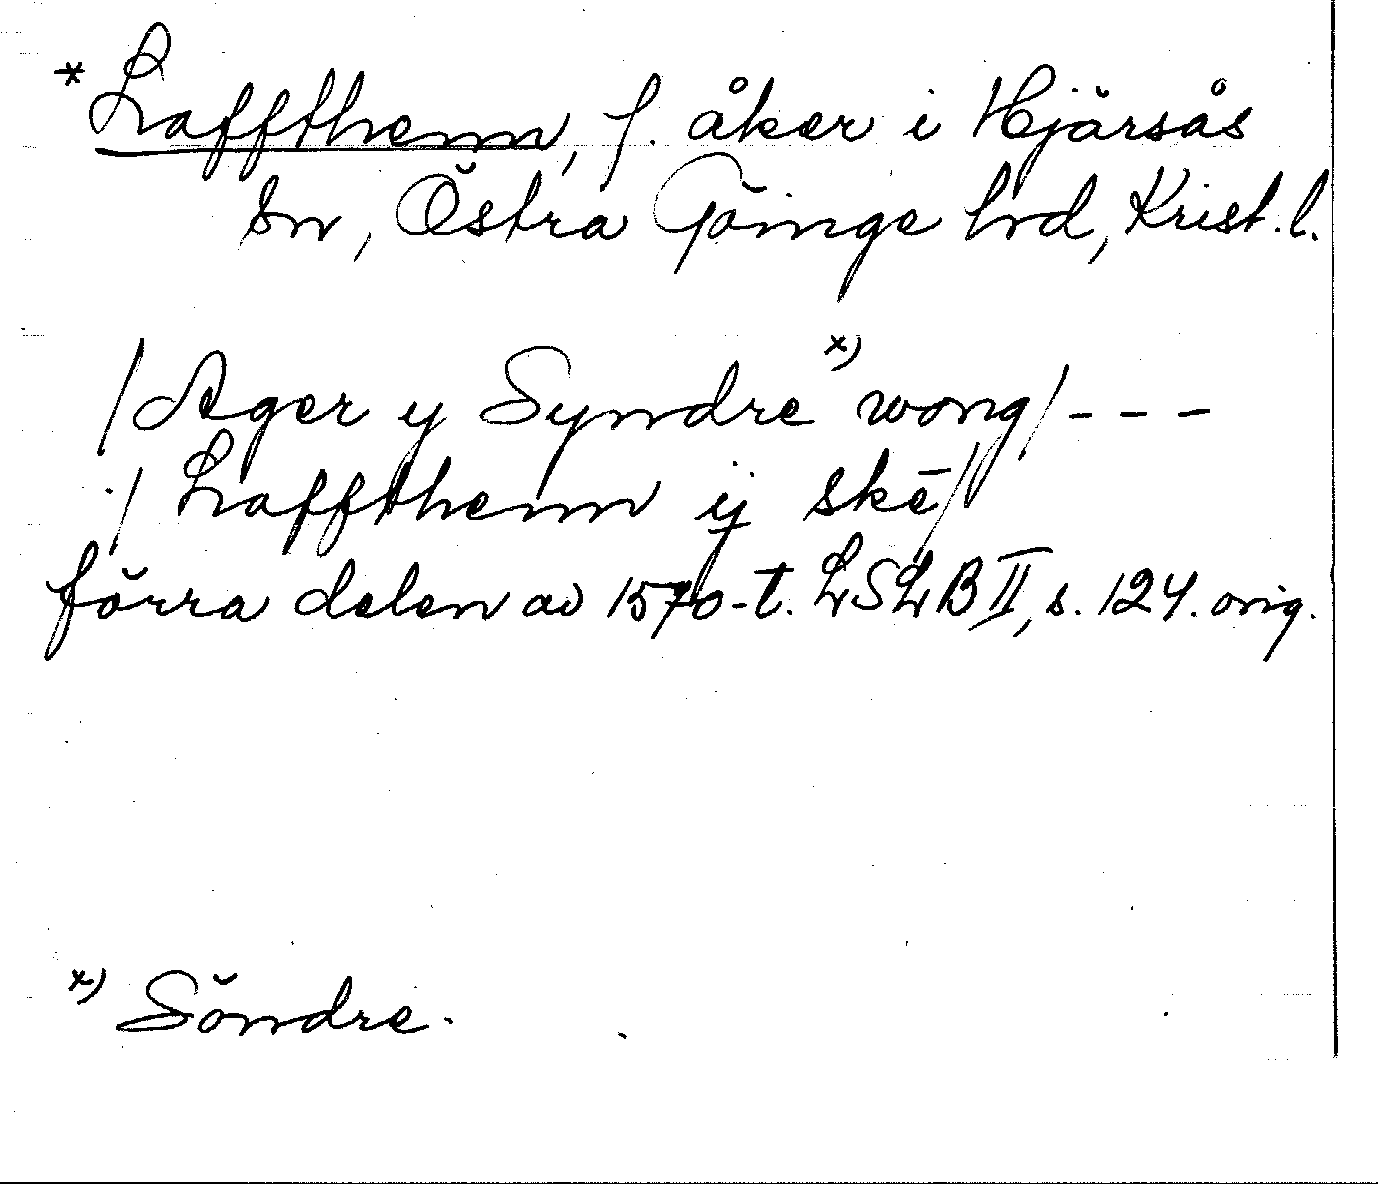 *Laffthenn, f. åker i Hjärsås
sn, Östra Göinge hrd, Krist. l.
/Ager y Syndre x) wong/ - - -
/ Laffthenn ij ske̅/
förra delen av 1570-t. LSLB II, s. 124. orig.
x) Söndre.